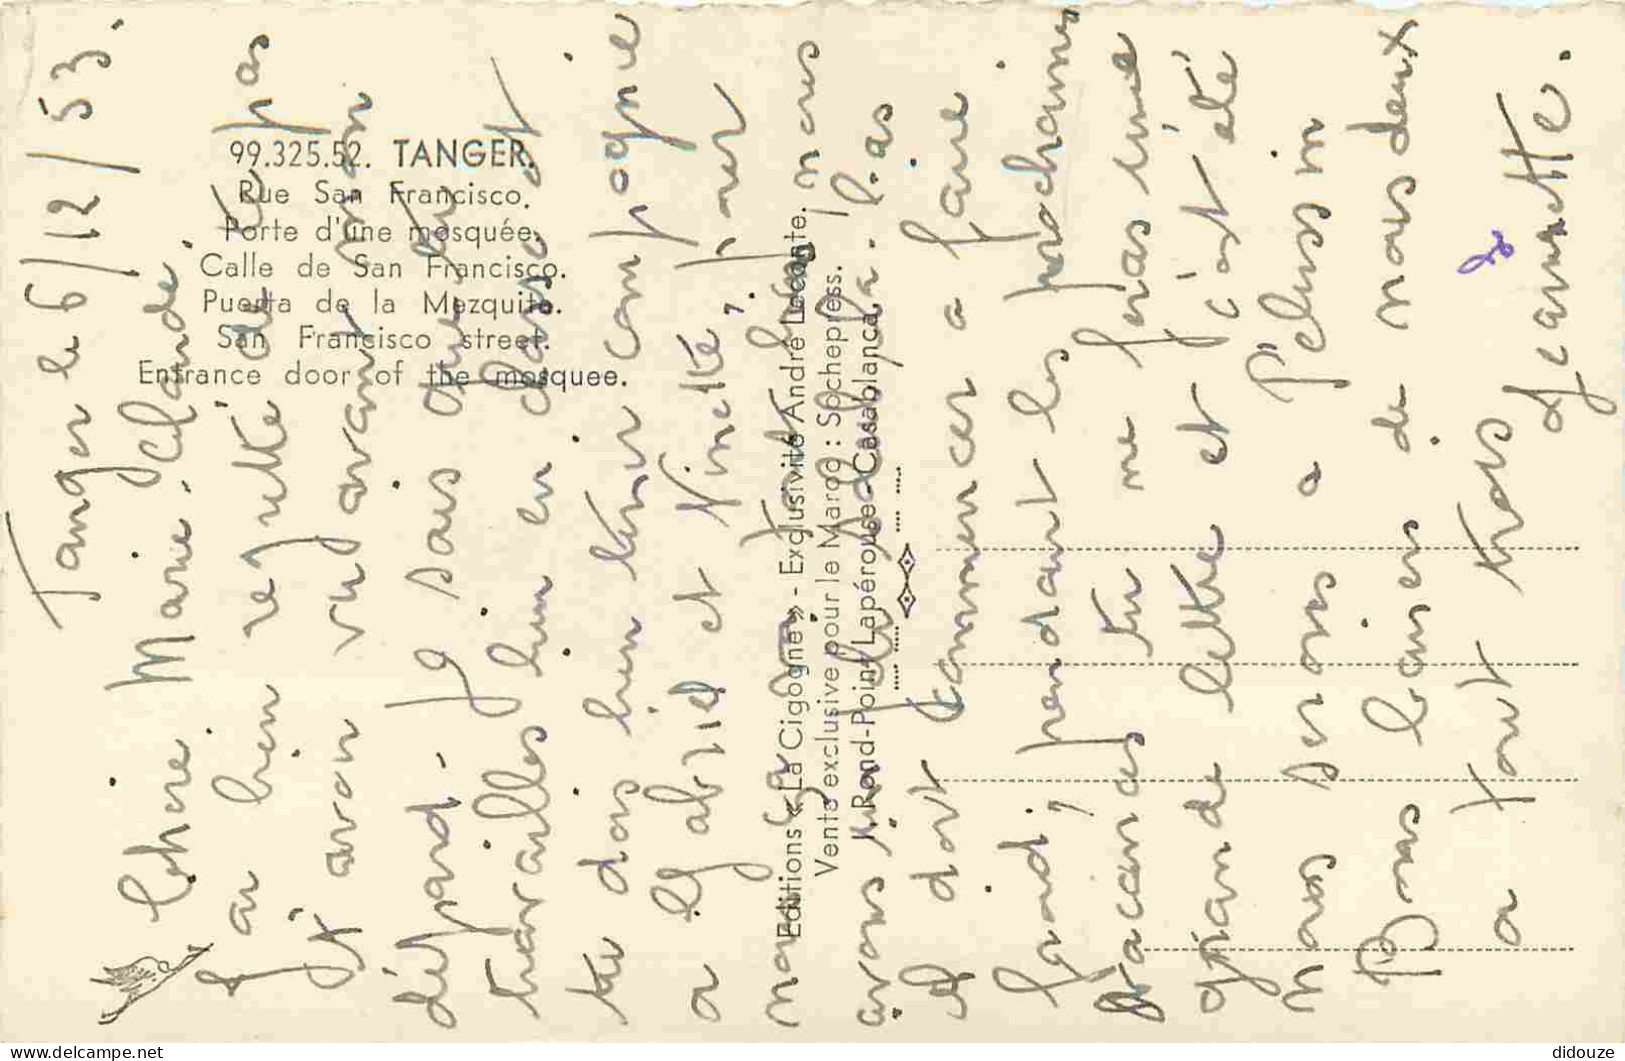 99.325.52. TANGER.
Rue San Francisco.
Porte d'une mosquée.
Calle de San Francisco.
Puerta de la Mezquita.
San Francisco street.
Entrance door of the mosquee.
Editions « La Cigogne » - Exclusivité André Leconte.
Vente exclusive pour le Maroc : Sochepress.
Rond-Point Lapérouse - Casablanca.
Tanger le 6/12/53.
Chère Marie-Claude.
J'ai bien regretté de te pas
t'avoir vu avant mon
départ. Je sais que tu
travailles bien en classe et
tu dois bien tenir compagnie
a Gabriel et Ninette, par
ici nous
avons
Il doit commencer a faire
froid, pendant les prochaines
vacances tu me feras une
grande lettre et c'est été
nous serons a Pelussin
Bons baisers de nous deux
a tout trois
Jeannette.